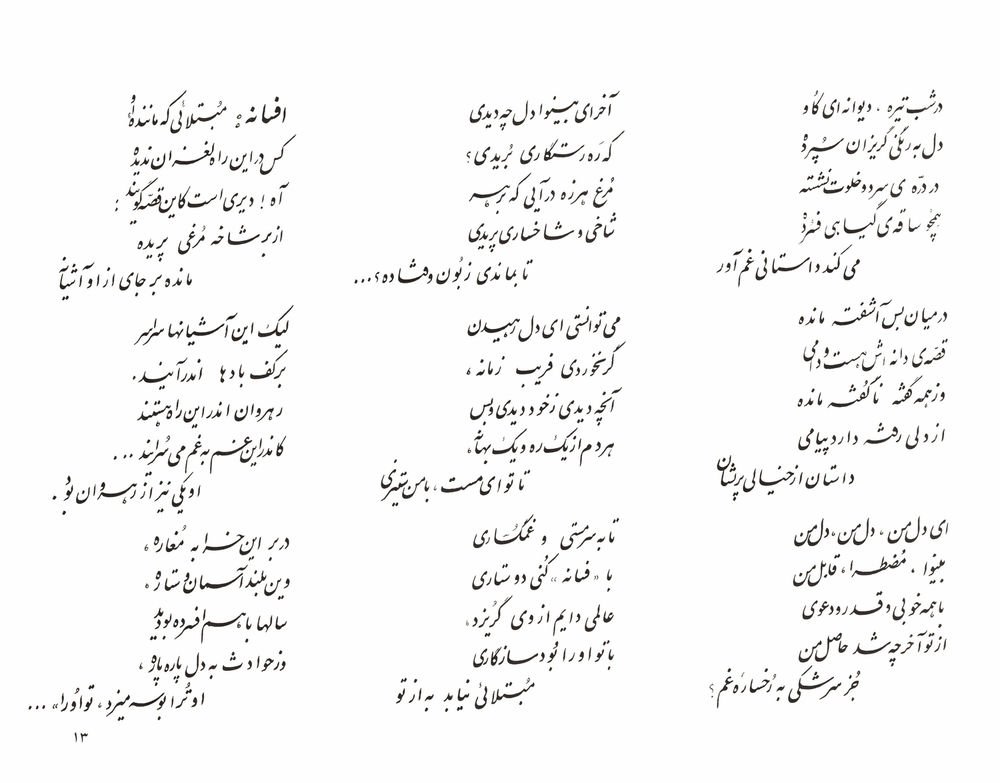 در شب تیره ، دیوانه‌ای کاو
دل به رنگی گریزان سپرده
در دره‌ی سرد و خلوت نشسته
همچو ساقه‌ی گیاهی فسرده
می کند داستانی غم آور
در میان بس آشفته مانده
قصه‌ی دانه اش هست و دامی
وز همه گفته ناگفته مانده
از دلی رفته دارد پیامی
داستان از خیالی پریشان
ای دل من ، دل من ، دل من
بینوا ، مضطرا ، قابل من
با همه خوبی و قدر و دعوی
از تو آخر چه شد حاصل من
جز سرشکی به رخساره‌ٔ غم ؟
آخر ای بینوا دل چه دیدی
که ره رستگاری بریدی ؟
مرغ هرزه درآیی که بر هر
شاخی و شاخساری پریدی
تا بماندی زبون و فتاده ؟...
می توانستی ای دل رهیدن
گر نخوردی فریب زمانه ،
آنچه دیدی ز خود دیدی و بس
هر دم از یک ره و یک بهانه ،
تا تو ای مست ، با من ستیزی
تا به سرمستی و غمگساری
با « فسانه » کنی دوستاری
عالمی دایم از وی گریزد ،
با تو او را بود سازگاری
مبتلائی نیابد به از تو
افسانه : مبتلائی که ماننده‌ٔ او
کس در این راه لغزان ندیده
آه ! دیری است کاین قصه گویند :
از بر شاخه مرغی پریده
مانده بر جای از او آشیانه
لیک این آشیانها سراسر
بر کف بادها اندر آیند .
رهروان اندر این راه هستند
کاندر این غم به غم می سرایند ...
او یکی نیز از رهروان بود .
در بر این خرابه مغاره ،
وین بلند آسمان و ستاره ،
سالها با هم افسرده بودید
وز حوادث به دل پاره پاره ،
او ترا بوسه میزد ، تو او را» ...
۱۳